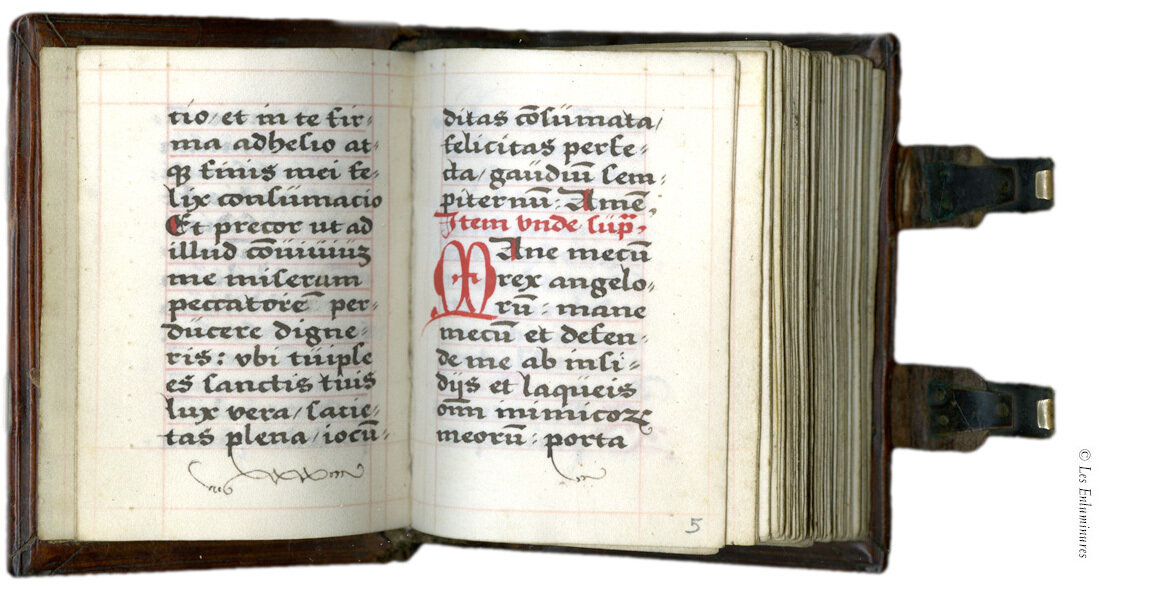 tio / et in te fir⸗
ma adhesio at⸗
qꝫ finis mei fe⸗
lix consumacio
Et precor ut ad
illud cōuiuiuꝫ
me miserum
peccatorē per⸗
ducere digne⸗
ris : vbi tu ipse
es sanctis tuis
lux vera / sacie⸗
tas plena / iocū⸗
ditas cōsumata /
felicitas perfe⸗
cta / gaudiū sem⸗
piternū : Amē.
Item vnde sup̄.
MAne mecū
rex angelo⸗
rū : mane
mecū et defen⸗
de me ab insi⸗
dijs et laqueis
om̄ inimicoꝝ
meorū : porta
5
© Les Enluminures